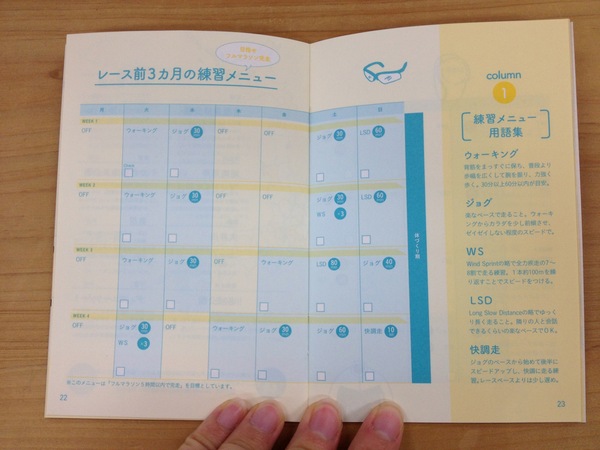 目指せ
フルマラソン完走
レース前3カ月の練習メニュー
月 火 水 木 金 土 日
WEEK 1
OFF ウォーキング ジョグ 30 OFF OFF ジョグ 30 LSD 60
WEEK 2
OFF OFF ジョグ 30 OFF OFF ジョグ 30 LSD 60
WS ×3
WEEK 3
OFF OFF ジョグ 30 OFF ウォーキング LSD 80 ジョグ 40
WEEK 4
OFF ジョグ 30 OFF ウォーキング ジョグ 30 ジョグ 60 快調走 10
WS ×3
体づくり期
※このメニューは「フルマラソン5時間以内で完走」を目標としています。
22
column
1
練習メニュー
用語集
ウォーキング
背筋をまっすぐに保ち、普段より
歩幅を広くして腕を振り、力強く
歩く。30分以上60分以内が目安。
ジョグ
楽なペースで走ること。ウォーキ
ングからカラダを少し前傾させ、
ゼイゼイしない程度のスピードで。
WS
Wind Sprintの略で全力疾走の7〜
8割で走る練習。1本約100mを繰
り返すことでスピードをつける。
LSD
Long Slow Distanceの略でゆっく
り長く走ること。隣りの人と会話
できるくらいの楽なペースでOK。
快調走
ジョグのペースから始めて徐々に
スピードアップし、快調に走る練
習。レースペースよりは少し遅め。
23